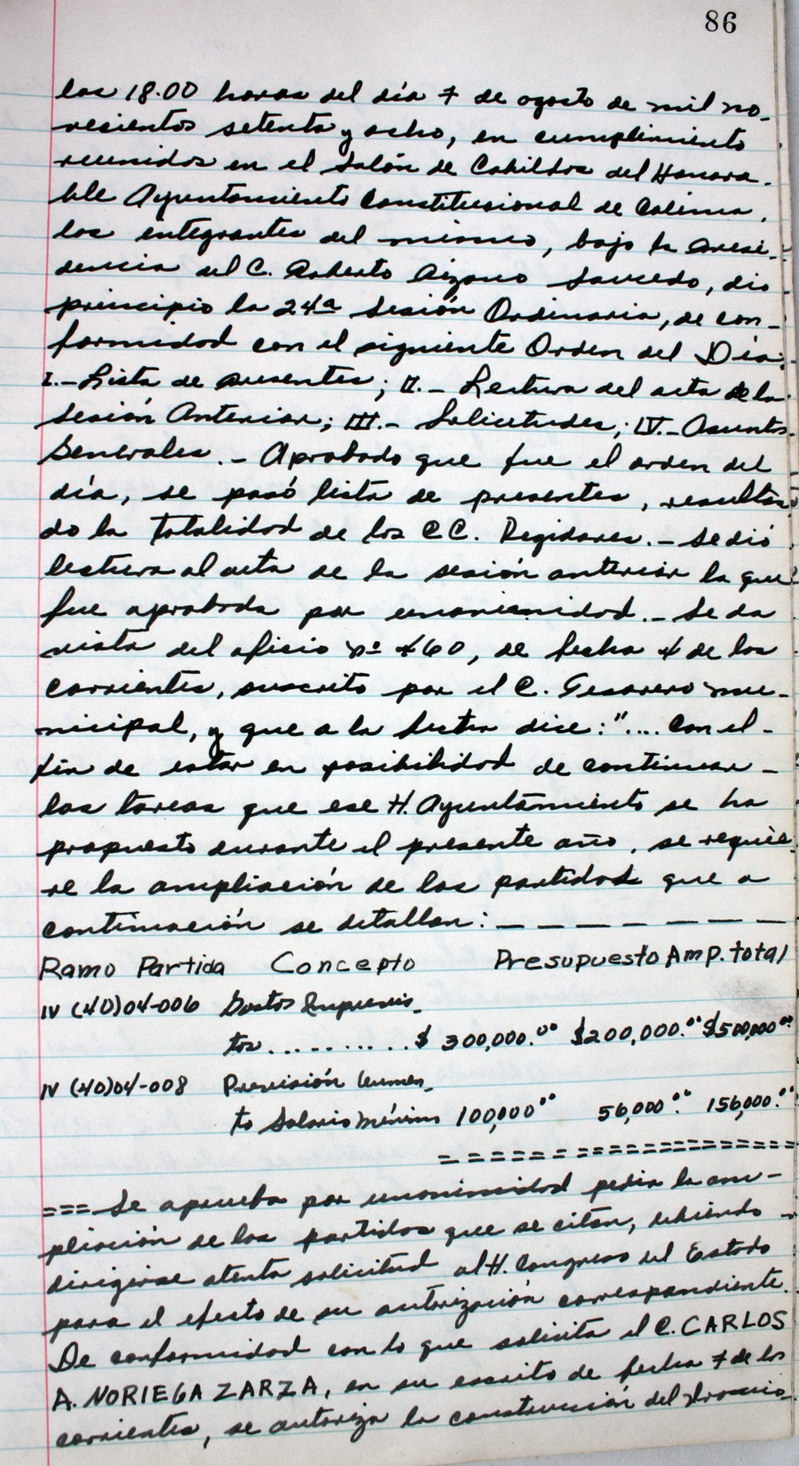 86
las 18.00 horas del día 7 de agosto de mil no-
vecientos setenta y ocho, en cumplimiento
reunidos en el Salón de Cabildos del Honora-
ble Ayuntamiento Constitucional de Colima,
los integrantes del mismo, bajo la Presi-
dencia del C. Roberto Saucedo, dio
principio la 24ª Sesión Ordinaria, de con-
formidad con el siguiente Orden del Día:
I.- Lista de presentes; II.- Lectura del acta de la
Sesión Anterior; III.- Solicitudes; IV.- Asuntos
Generales.- Aprobado que fue el orden del
día, se pasó lista de presentes, resultan-
do la totalidad de los CC. Regidores.- Se dió
lectura al acta de la sesión anterior la que
fue aprobada por unanimidad.- Se da
vista del oficio nº 460, de fecha 4 de los
corrientes, suscrito por el C. Tesorero mu-
nicipal, y que a la letra dice: ".... Con el-
fin de estar en posibilidad de continuar-
las tareas que ese H. Ayuntamiento se ha
propuesto durante el presente año, se requie-
re la ampliación de las partidas que a
continuación se detallan: _ _ _ _ _ _ _
Ramo Partida Concepto Presupuesto Amp. total
IV (40)04-006 Gastos Imprevis_
tos.......... $ 300,000.⁰⁰ $200,000.⁰⁰ $500,000⁰⁰
IV (40)04-008 Previsión Aumen_
to Salario Mínimo 100,000⁰⁰ 56,000.⁰⁰ 156,000.⁰⁰
= = = = = = = = = = = = = = = = = =
=== Se aprueba por unanimidad pedir la am-
pliación de las partidas que se citan, debiendo
dirigirse atenta solicitud al H. Congreso del Estado
para el efecto de su autorización correspondiente.
De conformidad con lo que solicita el C. CARLOS
A. NORIEGA ZARZA, en su escrito de fecha 7 de los
corrientes, se autoriza la construcción del